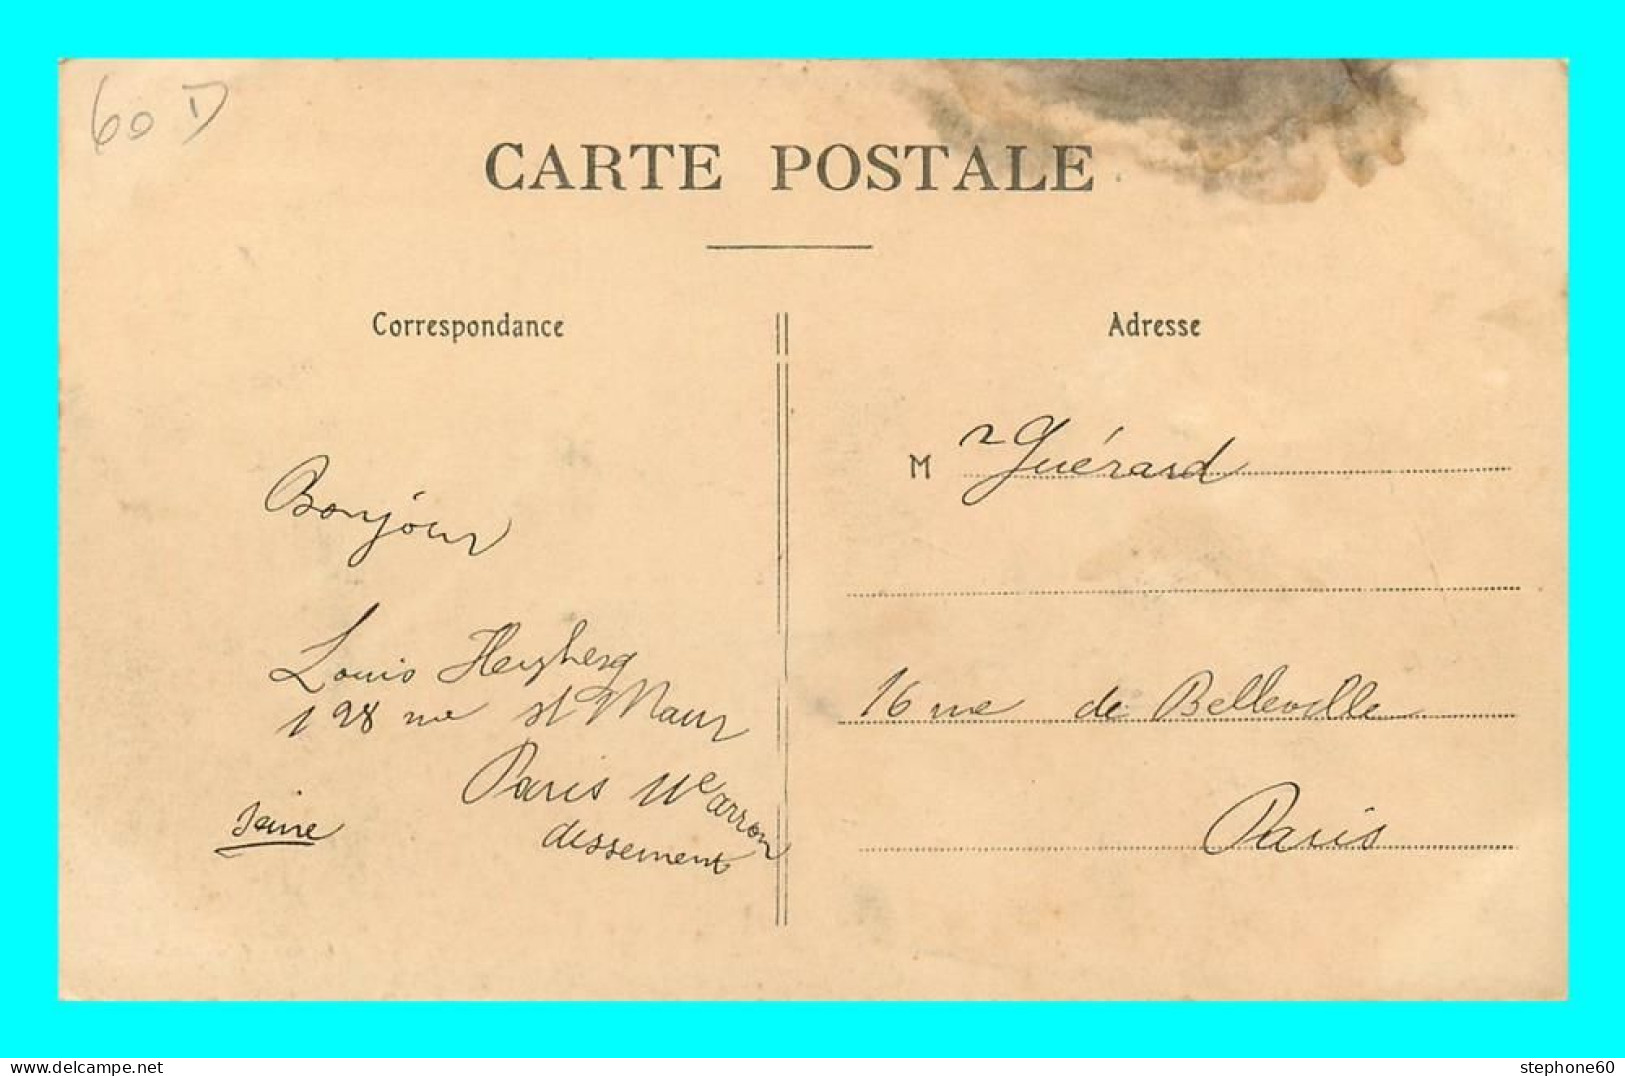 60 D
CARTE POSTALE
Correspondance
Adresse
Bonjour
Louis
128 rue St Maur
Paris 11e arron
dissement
Seine
Mr Guérard
16 rue de Belleville
Paris
www.delcampe.net
stephone60